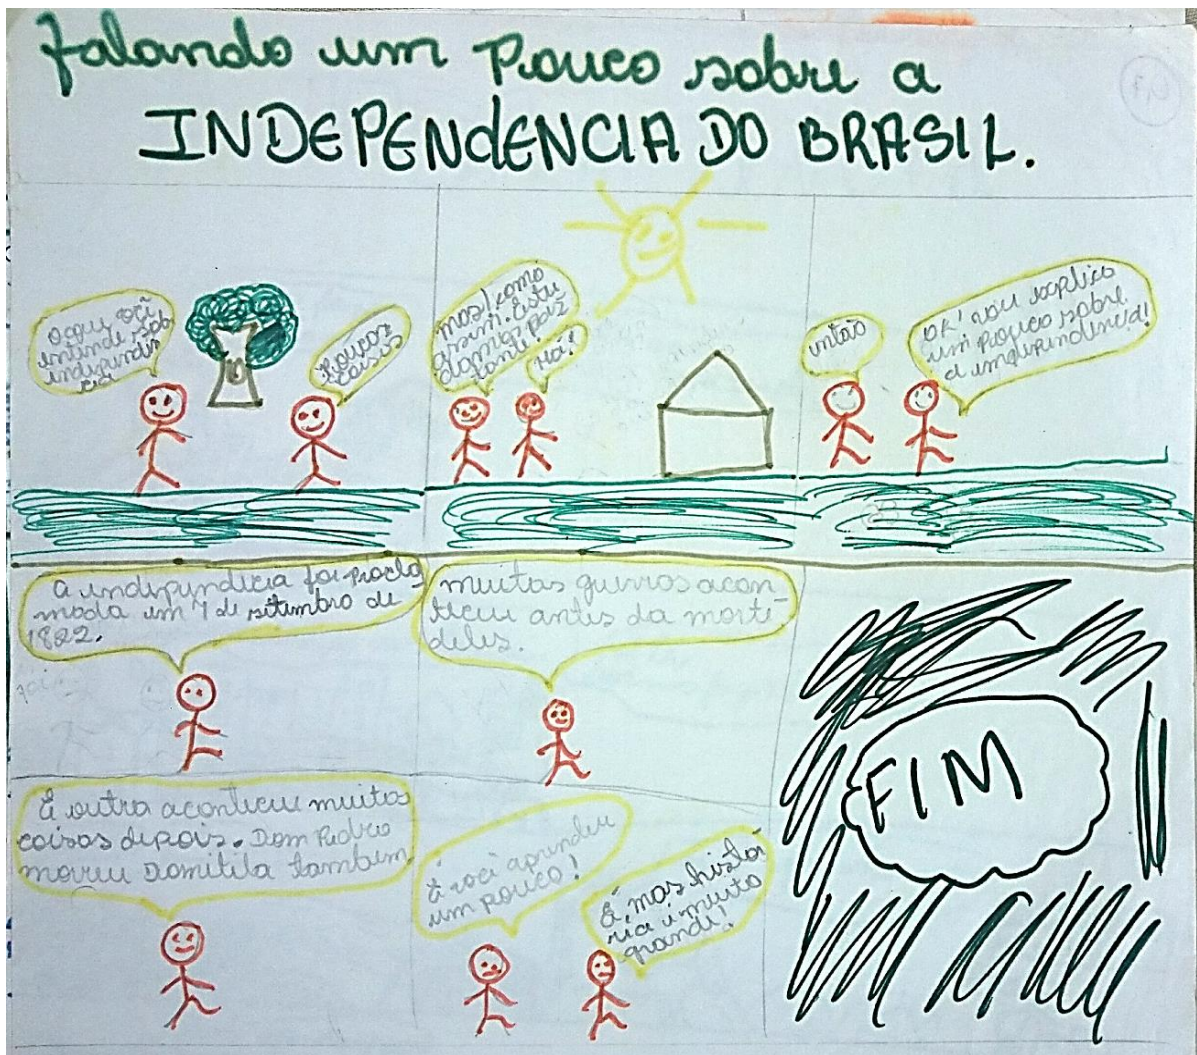 falando um pouco sobre a
INDEPENdENCIA DO BRASIL.
O que você
entende sob
independên
cia
Poucas
coisas
mas! como
assim. Este
Há!
então
OK! vou explica
um pouco sobre
a independencia!
A independecia foi procla
mada em 7 de setembro de
1822.
muitas guerras acon
teceu antes da morte
deles.
E outra aconteceu muitas
coisas depois. Dom Pedro
morreu Domitila tambem.
E você aprendeu
um pouco!
É, mas histó
ria é muito
grande!
FIM